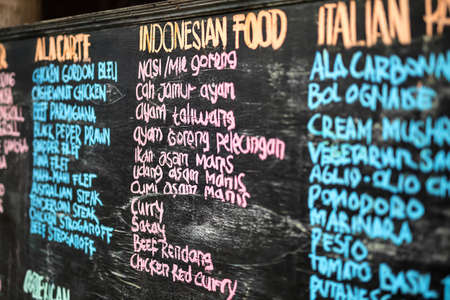 ALACARTE
CHICKEN GORDON BLEU
CASHEWNUT CHICKEN
BEEF PARMIGIANA
BLACK PEPER PRAWN
SNAPPER FILET
TUNA FILET
MAHI FILET
AUSTRALIAN STEAK
TENDERLOIN STEAK
CHICKEN STROGANOFF
BEEF STROGANOFF
INDONESIAN FOOD
NASI/MIE goreng
cah jamur ayam
ayam taliwang
ayam Goreng pelecungan
Ikan asam manis
udang asam manis
Cumi asam manis
Curry
Satay
Beef Rendang
Chicken Red Curry
ITALIAN
ALA CARBONA
BOLOGNAISE
CREAM MUSHR
VEGETARIAN
AGLIO-OLIO
POMODORO
MARINARA
PESTO
TOMATO BASIL
PUTANES